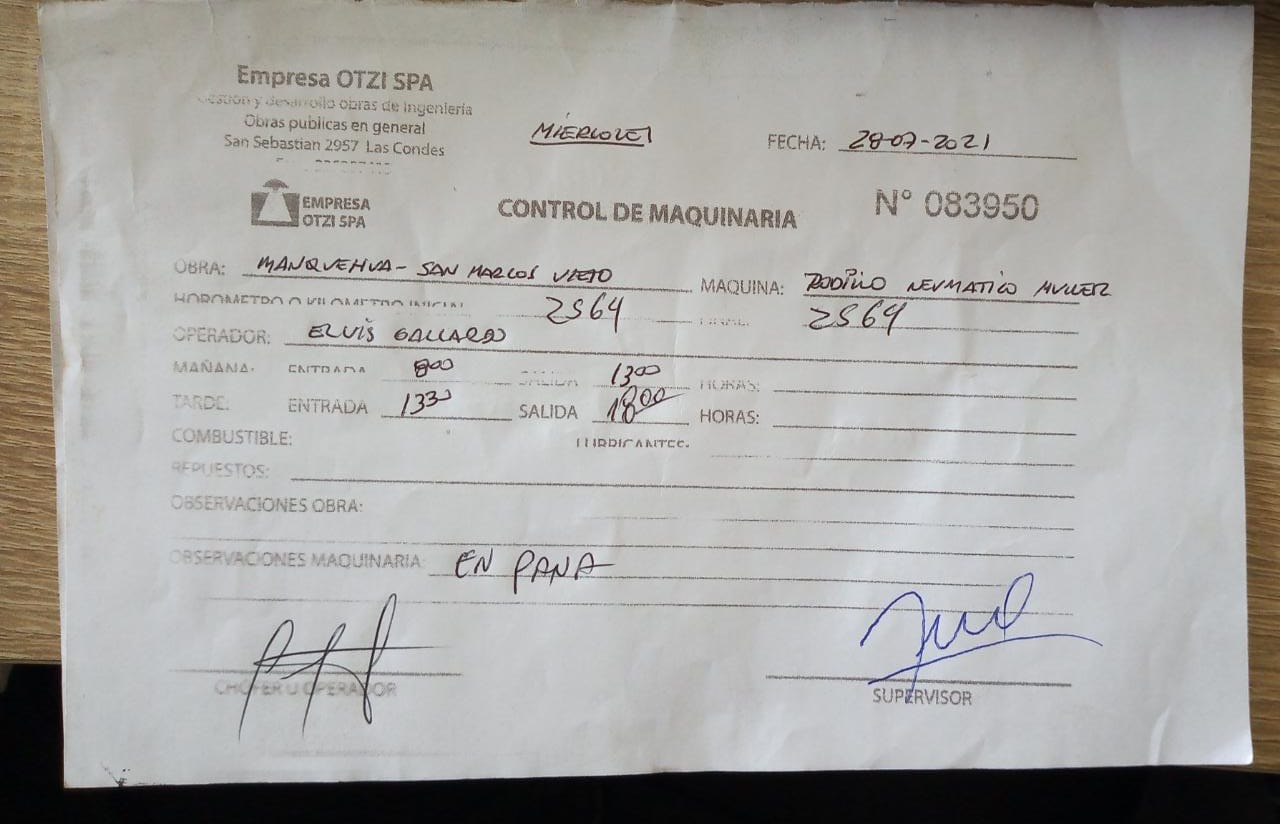 Empresa OTZI SPA
Gestión y desarrollo obras de Ingeniería
Obras publicas en general
San Sebastian 2957 Las Condes
MIERCOLES
FECHA: 28-07-2021
EMPRESA
OTZI SPA
CONTROL DE MAQUINARIA
N° 083950
OBRA: MANQUEHUA - SAN MARCOS VIEJO MAQUINA: RODILLO NEUMATICO MULLER
HOROMETRO O KILOMETRO INICIAL 2564 FINAL: 2564
OPERADOR: ELVIS GALLARDO
MAÑANA: ENTRADA 800 SALIDA 1300 HORAS:
TARDE: ENTRADA 1330 SALIDA 1800 HORAS:
COMBUSTIBLE: LUBRICANTES:
REPUESTOS:
OBSERVACIONES OBRA:
OBSERVACIONES MAQUINARIA: EN PANA
CHOFER U OPERADOR
SUPERVISOR